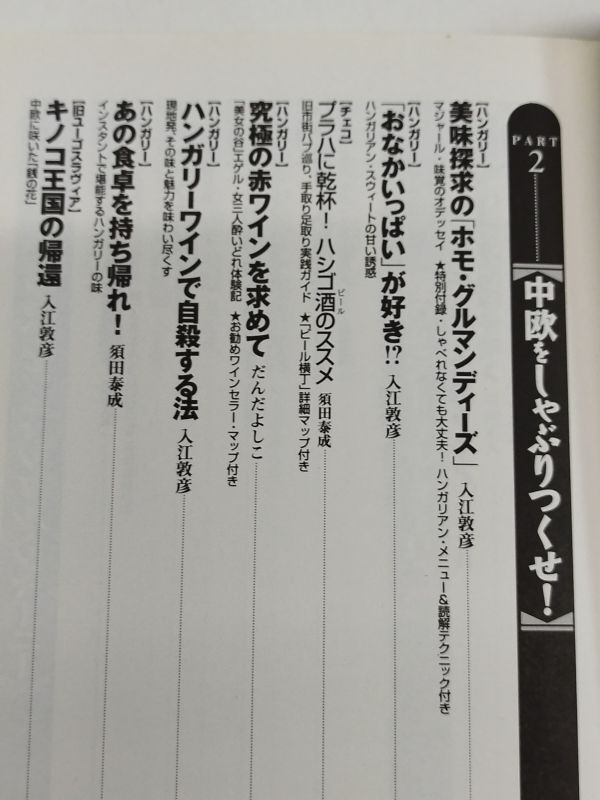 PART
2
中欧をしゃぶりつくせ！
【ハンガリー】
美味探求の「ホモ・グルマンディーズ」 入江敦彦
マジャール・味覚のオデッセイ ★特別付録・しゃべれなくても大丈夫！ハンガリアン・メニュー&読解テクニック付き
【ハンガリー】
「おなかいっぱい」が好き!? 入江敦彦
ハンガリアン・スウィートの甘い誘惑
【チェコ】
プラハに乾杯！ハシゴ酒のススメ 須田泰成
ビール
旧市街パブ巡り、手取り足取り実践ガイド ★「ビール横丁」詳細マップ付き
【ハンガリー】
究極の赤ワインを求めて だんだよしこ
「美女の谷」エゲル・女三人酔いどれ体験記 ★お勧めワインセラー・マップ付き
【ハンガリー】
ハンガリーワインで自殺する法 入江敦彦
現地発、その味と魅力を味わい尽くす
【ハンガリー】
あの食卓を持ち帰れ！ 須田泰成
インスタントで堪能するハンガリーの味
【旧ユーゴスラヴィア】
キノコ王国の帰還 入江敦彦
中欧に咲いた「銭の花」